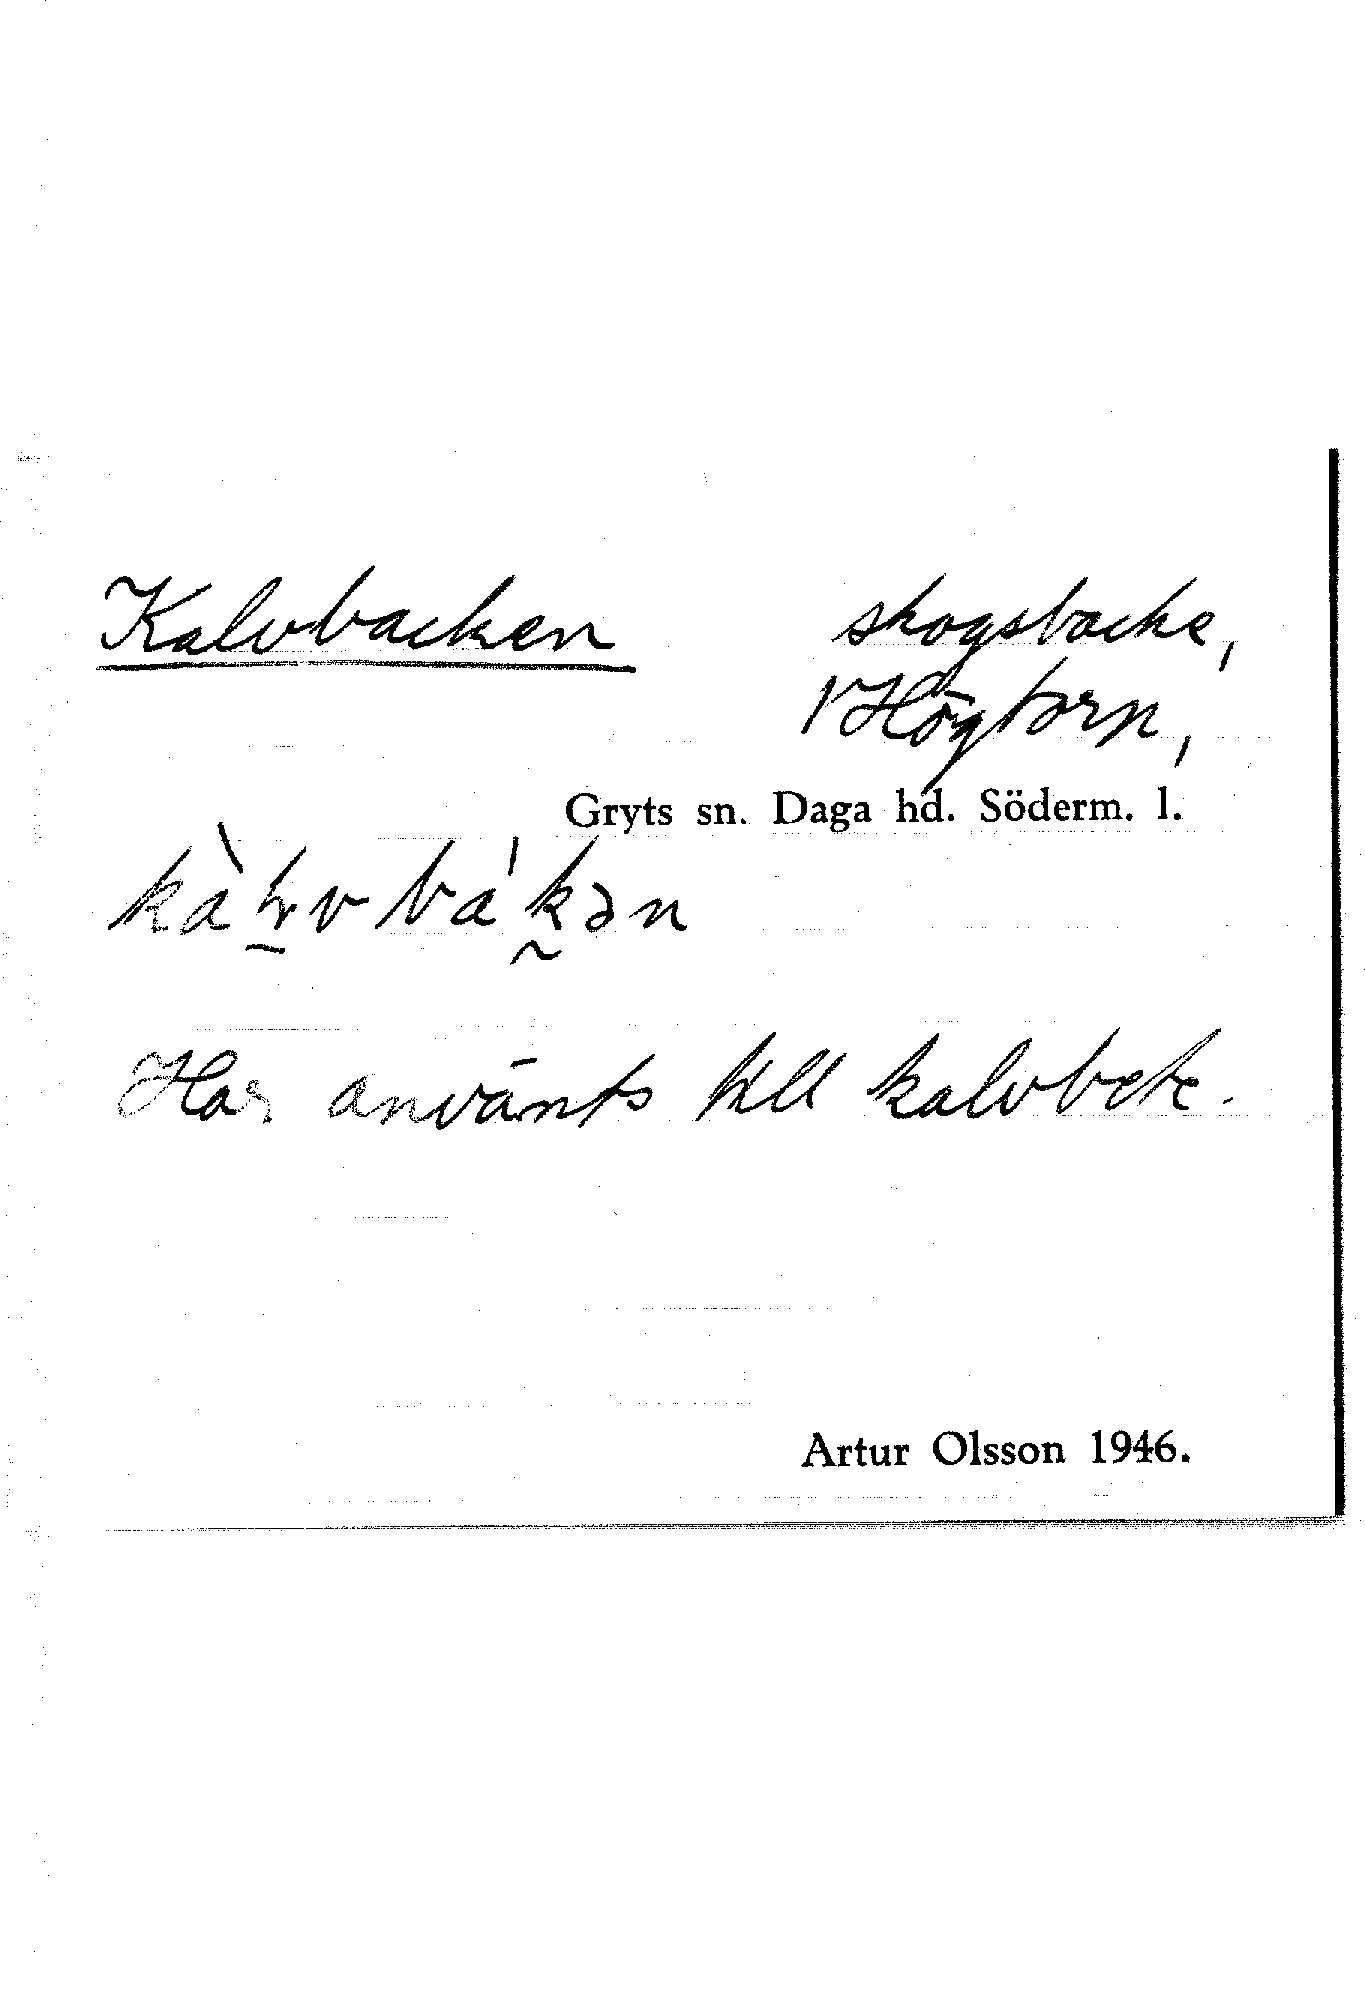 Kalvbacken skogsbacke,
1 Högtorn,
Gryts sn. Daga hd. Söderm. l.
Har använts till kalvbete.
Artur Olsson 1946.